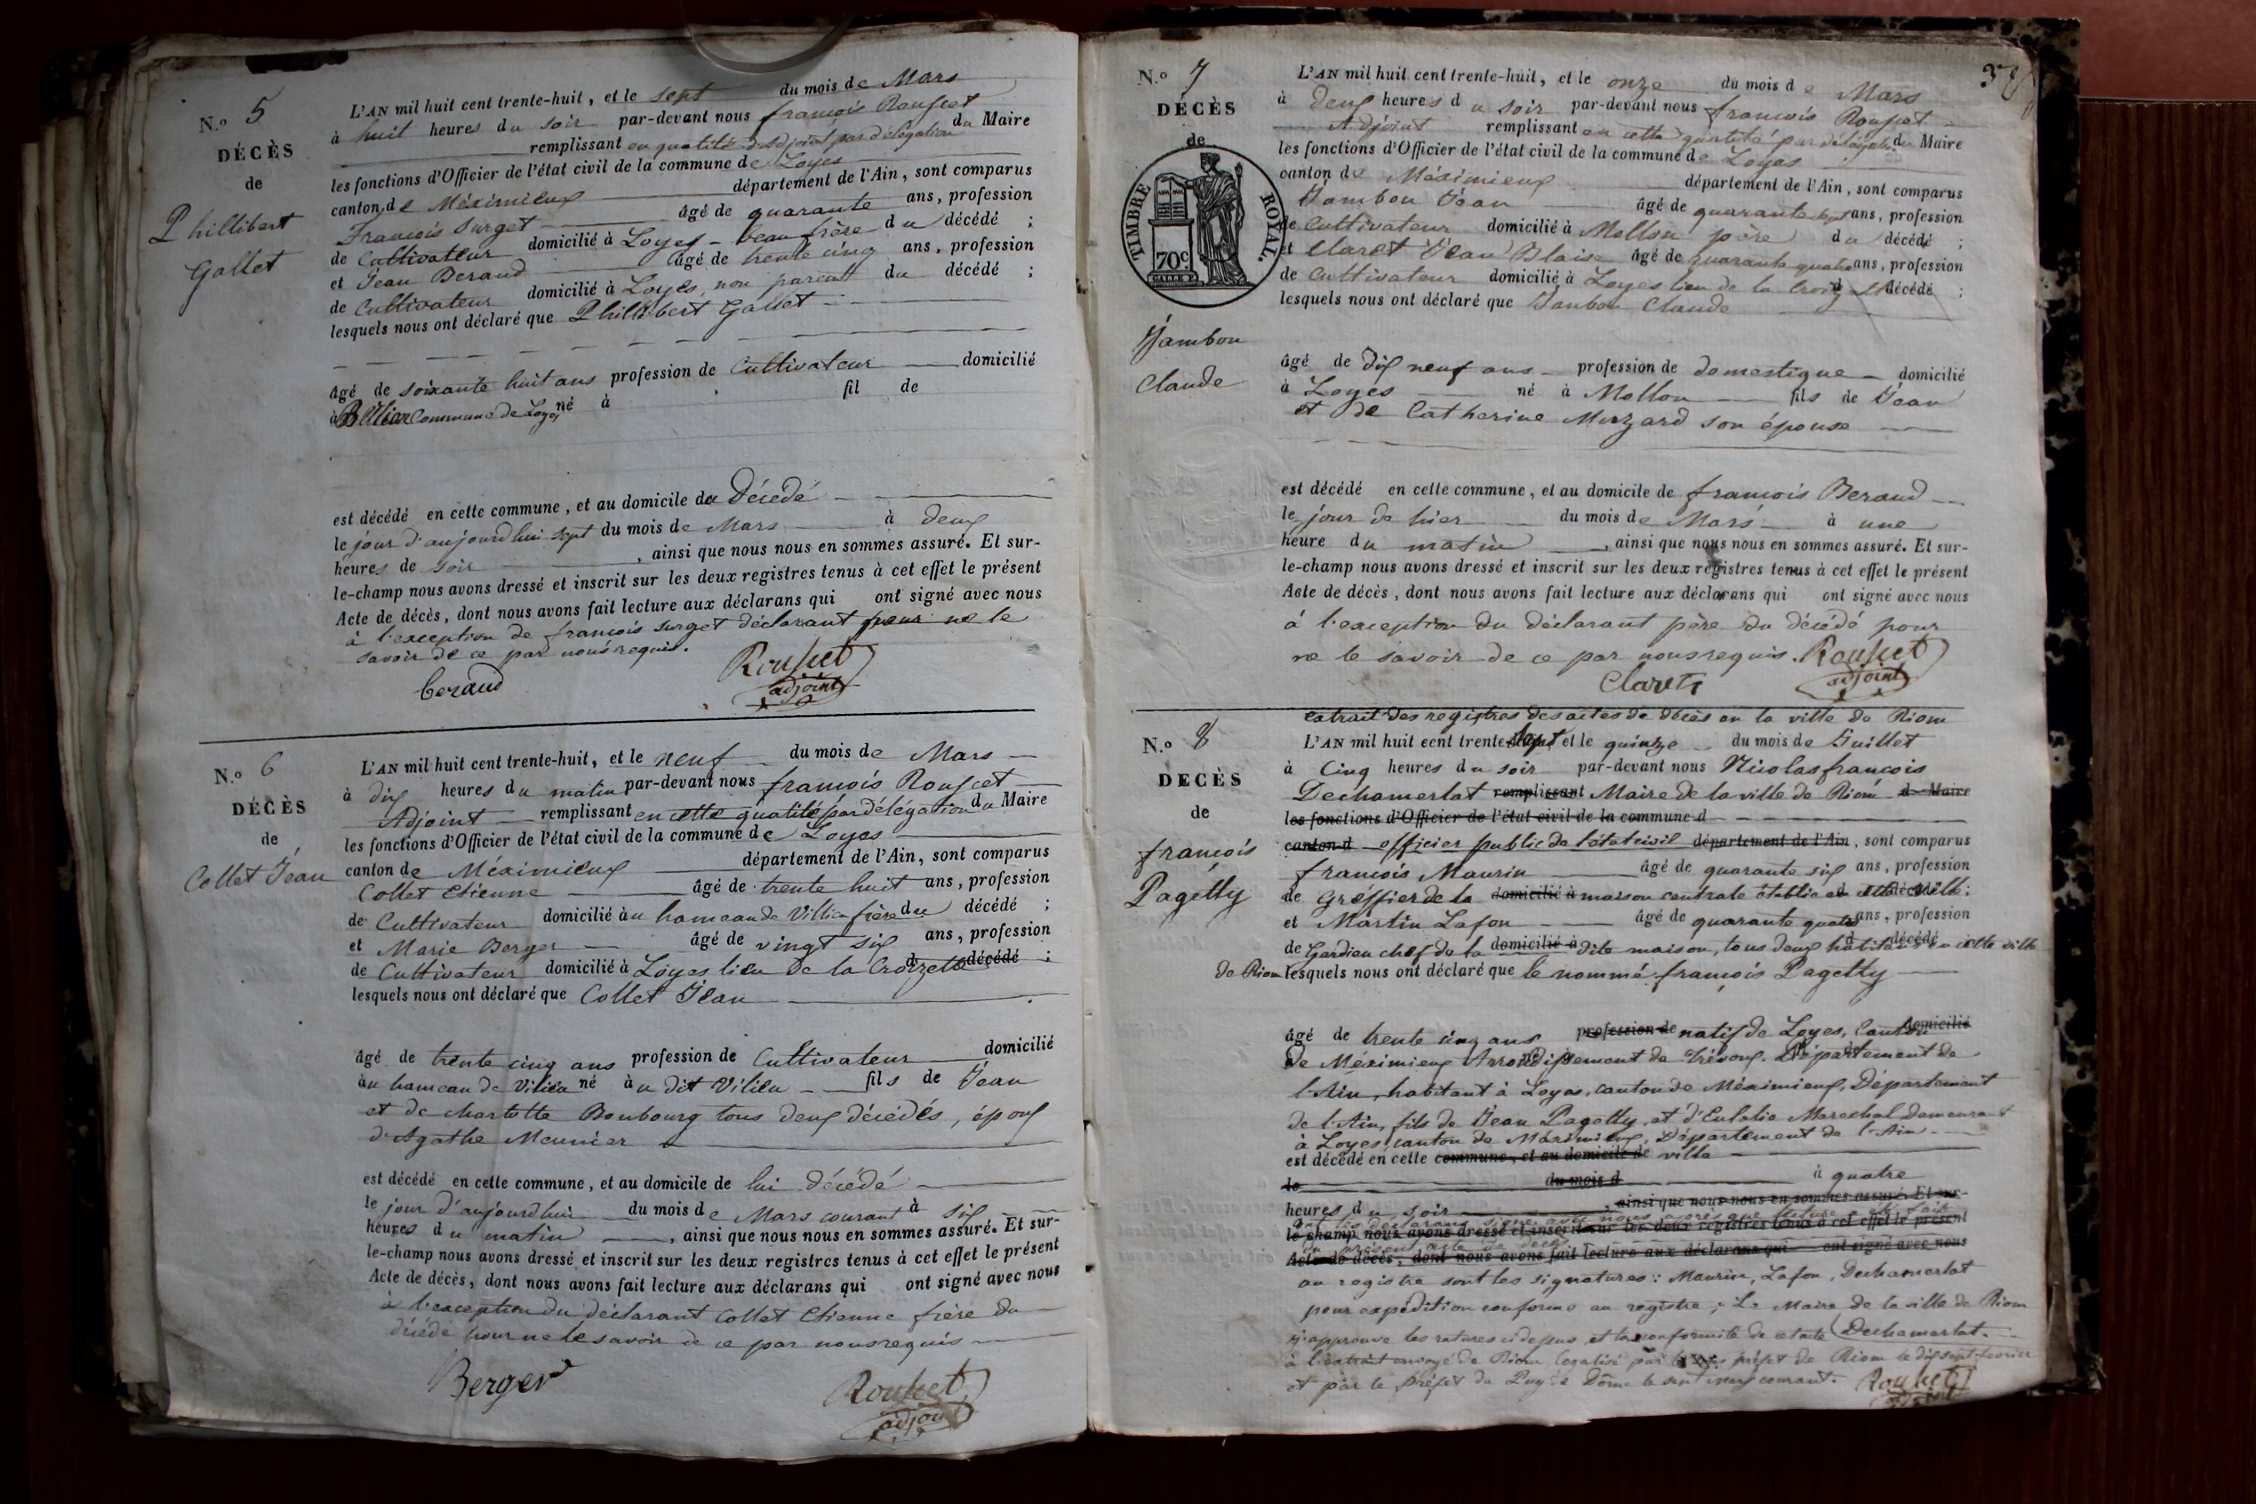 N.º 5
DÉCÈS
de
Phillibert
Gallet
L'AN mil huit cent trente-huit, et le sept du mois de Mars
à huit heures du soir par-devant nous françois Roupet
remplissant en qualité d'adjoint par délégation du Maire
les fonctions d'Officier de l'état civil de la commune de Loyes
canton de Méximieux département de l'Ain, sont comparus
François Surget âgé de quarante ans, profession
de Cultivateur domicilié à Loyes - beau frère du décédé ;
et Jean Beraud âgé de trente cinq ans, profession
de Cultivateur domicilié à Loyes, non parent du décédé ;
lesquels nous ont déclaré que Phillibert Gallet
âgé de soixante huit ans profession de Cultivateur domicilié
à Commune de Loyes né à fil de
est décédé en cette commune, et au domicile du Décédé
le jour d'aujourdhui sept du mois de Mars à deux
heures de soir, ainsi que nous nous en sommes assuré. Et sur-
le-champ nous avons dressé et inscrit sur les deux registres tenus à cet effet le présent
Acte de décès, dont nous avons fait lecture aux déclarans qui ont signé avec nous
à l'exception de françois surget déclarant pour ne le
savoir de ce par nous requis.
beraud Roupet
adjoint
N.º 6
DÉCÈS
de
Collet Jéan
L'AN mil huit cent trente-huit, et le neuf du mois de Mars
à dix heures du matin par-devant nous françois Roupet
Adjoint remplissant en cette qualité par délégation du Maire
les fonctions d'Officier de l'état civil de la commune de Loyes
canton de Méximieux département de l'Ain, sont comparus
Collet Etienne âgé de trente huit ans, profession
de Cultivateur domicilié àu hameau de Villieu frère du décédé ;
et Marie Berger âgé de vingt six ans, profession
de Cultivateur domicilié à Loyes lieu de la Croizette d décédé ;
lesquels nous ont déclaré que Collet Jéan
âgé de trente cinq ans profession de Cultivateur domicilié
àu hameau de Vilieu né àu dit Vilieu fils de Jéan
et de charlotte Boubourg tous deux décédés, époux
d'Agathe Meunier
est décédé en cette commune, et au domicile de lui décédé
le jour d'aujourdhui du mois de Mars courant à six
heures du matin, ainsi que nous nous en sommes assuré. Et sur-
le-champ nous avons dressé et inscrit sur les deux registres tenus à cet effet le présent
Acte de décès, dont nous avons fait lecture aux déclarans qui ont signé avec nous
à l'exception du déclarant Collet Etienne frère du
décédé pour ne le savoir de ce par nous requis
Berger Roupet
adjoint
37
N.º 7
DECÈS
de
TIMBRE ROYAL.
70c
Jambon
Claude
L'AN mil huit cent trente-huit, et le onze du mois de Mars
à deux heures du soir par-devant nous françois Roupet
Adjoint remplissant en cette quatité par délégation du Maire
les fonctions d'Officier de l'état civil de la commune de Loyes
canton de Méximieux département de l'Ain, sont comparus
Jambon Jéan âgé de quarante sept ans, profession
de Cultivateur domicilié à Mollon père du décédé ;
et Claret Jéan Blaise âgé de quarante quatre ans, profession
de Cultivateur domicilié à Loyes lieu de la d décédé ;
lesquels nous ont déclaré que Jambon Claude
âgé de dix neuf ans profession de domestique domicilié
à Loyes né à Mollon fils de Jéan
et de Catherine son épouse
est décédé en cette commune, et au domicile de françois Beraud
le jour de hier du mois de Mars à une
heure du matin, ainsi que nous nous en sommes assuré. Et sur-
le-champ nous avons dressé et inscrit sur les deux registres tenus à cet effet le présent
Acte de décès, dont nous avons fait lecture aux déclarans qui ont signé avec nous
à l'exception du déclarant père du décédé pour
ne le savoir de ce par nous requis. Roupet
Claret adjoint
extrait des registres des actes de décès en la ville de Riom
N.º 8
DECÈS
de
françois
Pagetty
L'AN mil huit cent trente sept et le quinze du mois de Juillet
à Cinq heures du soir par-devant nous Nicolas françois
Dechamerlat remplissant Maire de la ville de Riom d Maire
les fonctions d'Officier de l'état civil de la commune d
canton d officier public de l'état civil département de l'Ain, sont comparus
françois Maurin âgé de quarante six ans, profession
de Gréffier de la domicilié à maison centrale établie en cette ville ;
et Martin Lafon âgé de quarante quatre ans, profession
de Gardien chef de la domicilié à dite maison, tous deux habitans en cette ville
de Riom lesquels nous ont déclaré que le nommé françois Pagetty
âgé de trente cinq ans profession de natif de Loyes, Canton domicilié
de Méximieux Arrondissement de Trévoux. Département de
l'Ain, habitant à Loyes, canton de Méximieux, Département
de l'Ain, fils de Jéan Pagetty, et d'Eulalie Marechal demeurant
à Loyes canton de Méximieux, Département de l'Ain
est décédé en cette commune, et au domicile de ville
le du mois d à quatre
heures du soir, ainsi que nous nous en sommes assuré. Et sur-
ont les declarans signé avec nous après que lecture a été faite
le champ nous avons dressé et inscrit sur les deux registres tenus à cet effet le présent
du présent acte de décès
Acte de décès, dont nous avons fait lecture aux déclarans qui ont signé avec nous
au registre sont les signatures : Maurin, Lafon, Dechamerlat
pour expédition conforme au registre ; Le Maire de la ville de Riom
j'approuve les ratures ci depus et la conformité de cet acte Dechamerlat.
à l'extrait envoyé de Riom légalisé par le préfet de Riom le dix sept fevrier
et par le préfet du Puy de Dôme le courant. Roupet
adjoint